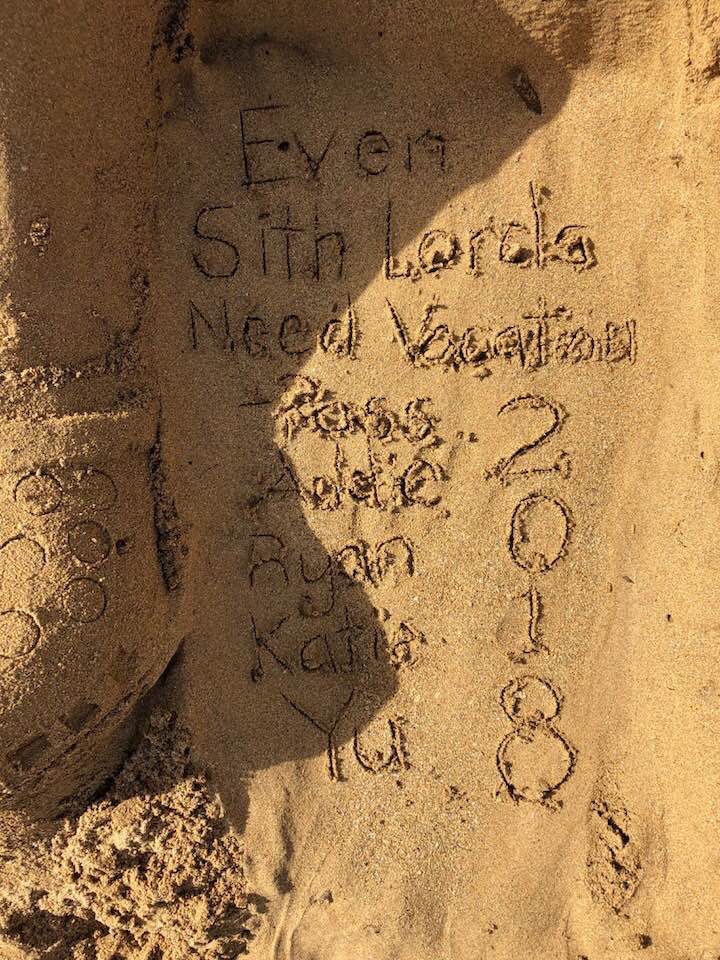 Even
Sith Lords
Need Vacation
- Ross
Addie
Ryan
Katie
Yu
2018